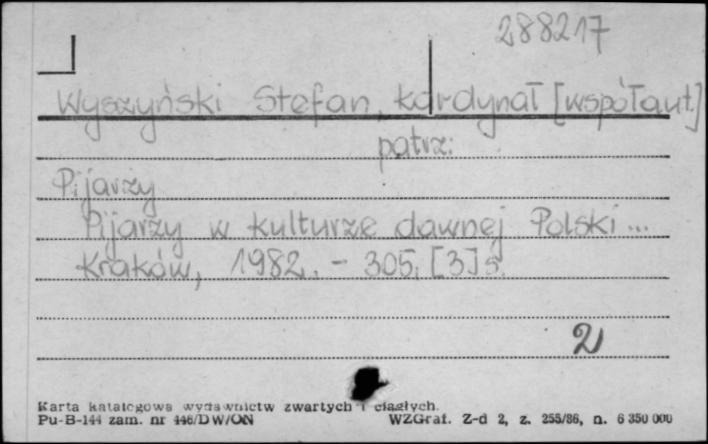 288217
Wyszyński Stefan, kardynał [współaut.]
patrz:
Pijarzy
Pijarzy w kulturze dawnej Polski ...
Kraków, 1982. - 305, [3] s.
2
Karta katalogowa wydawnictw zwartych i ciągłych.
Pu-B-144 zam. nr 446/DW/ON WZGraf. Z-d 2, z. 255/86, n. 6 350 000